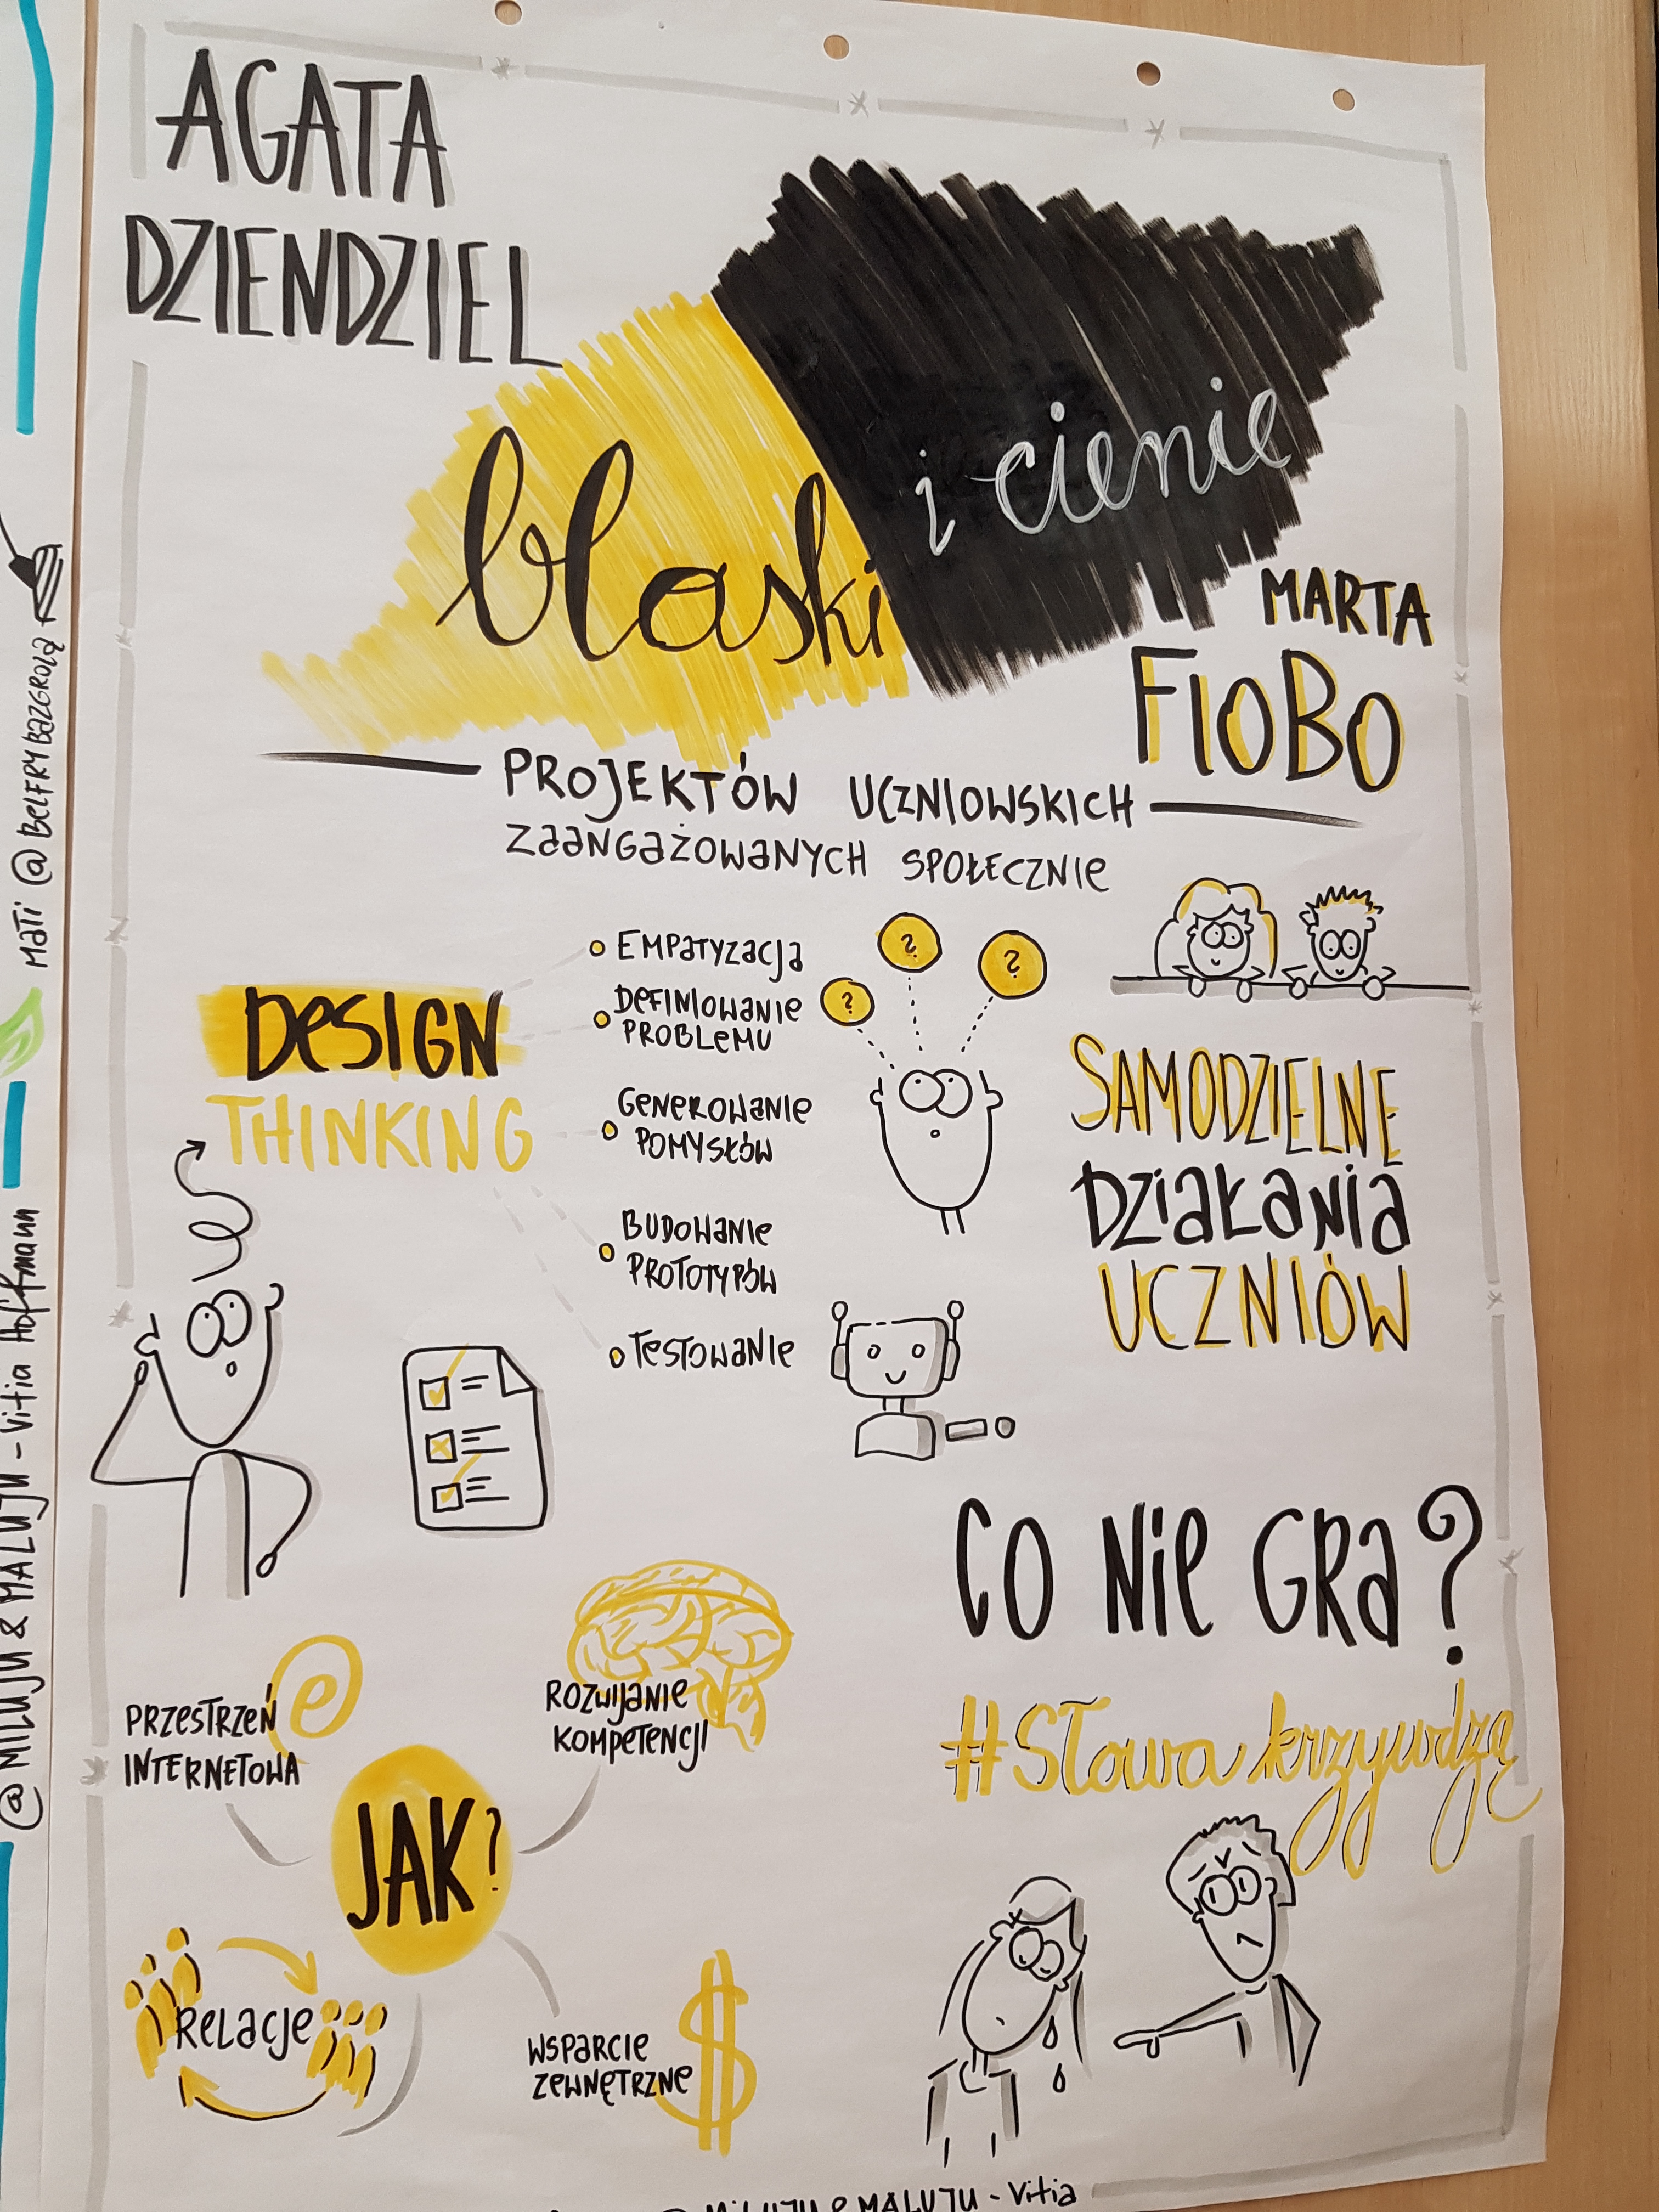 AGATA
DZIENDZIEL
blaski
i cienie
MARTA
FIOBO
PROJEKTÓW UCZNIOWSKICH
ZAANGAŻOWANYCH SPOŁECZNIE
DESIGN
THINKING
EMPATYZACJA
DEFINIOWANIE
PROBLEMU
GENEROWANIE
POMYSŁÓW
BUDOWANIE
PROTOTYPÓW
TESTOWANIE
? ? ?
SAMODZIELNE
DZIAŁANIA
UCZNIÓW
CO NIE GRA?
#Słowa krzywdzą
JAK?
PRZESTRZEŃ
INTERNETOWA
e
ROZWIJANIE
KOMPETENCJI
RELACJE
WSPARCIE
ZEWNĘTRZNE
$
MILUJU & MALUJU - Vitia
@MILUJU & MALUJU - Vitia Hoffmann
MATI @BELFRYBAZGROLĄ